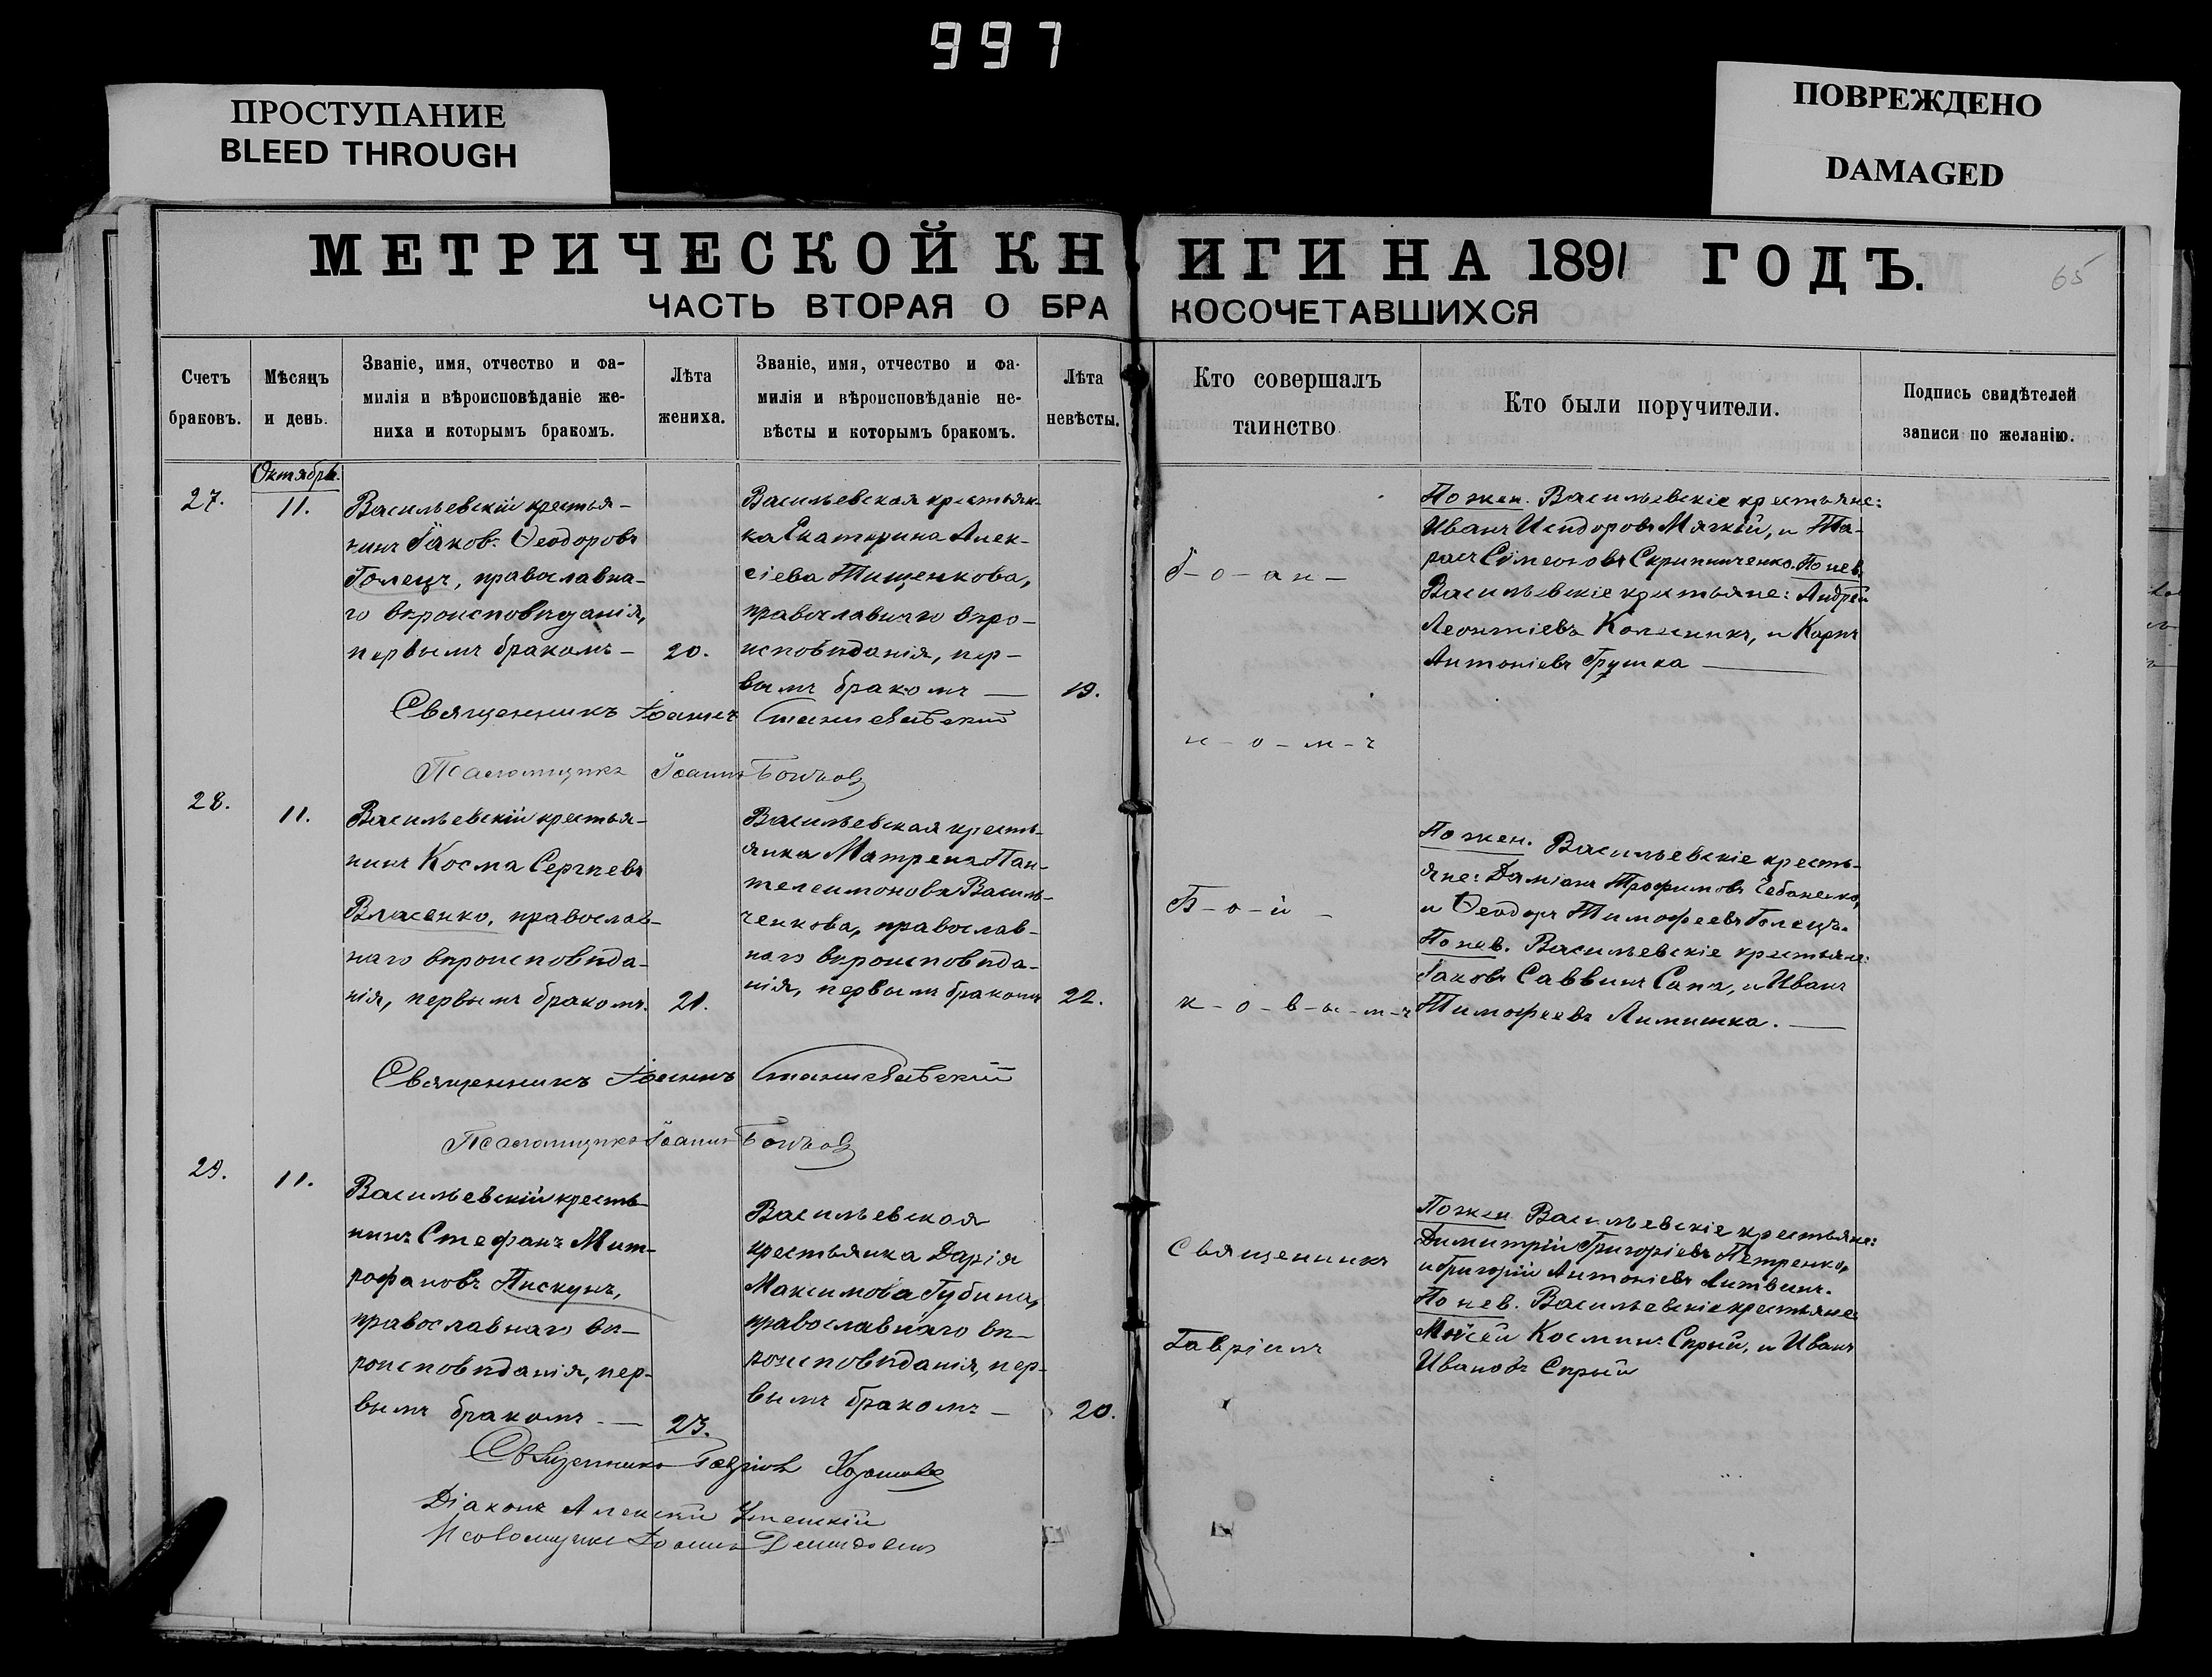 997
ПРОСТУПАНИЕ
BLEED THROUGH
ПОВРЕЖДЕНО
DAMAGED
МЕТРИЧЕСКОЙ КНИГИ НА 1891 ГОДЪ.
65
ЧАСТЬ ВТОРАЯ О БРАКОСОЧЕТАВШИХСЯ
Счетъ
браковъ.
Мѣсяцъ
и день.
Званіе, имя, отчество и фа-
милія и вѣроисповѣданіе же-
ниха и которымъ бракомъ.
Лѣта
жениха.
Званіе, имя, отчество и фа-
милія и вѣроисповѣданіе не-
вѣсты и которымъ бракомъ.
Лѣта
невѣсты.
Кто совершалъ
таинство
Кто были поручители.
Подпись свидѣтелей
записи по желанію.
Октябрь.
27.
11.
Васильевскій крестья-
нинъ Іаковъ Ѳеодоровъ
Голецъ, православна-
го вѣроисповѣданія,
первымъ бракомъ —
20.
Васильевская крестьян-
ка Екатерина Алек-
сіева Тищенкова,
православнаго вѣро-
исповѣданія, пер-
вымъ бракомъ —
19.
І-о-ан-
н-о-м-ъ
По жен. Васильевскіе крестьяне:
Иванъ Исидоровъ Мягкій, и Та-
расъ Сімеоновъ Скрипниченко. По нев.
Васильевскіе крестьяне: Андрей
Леонтіевъ Колесникъ, и Карпъ
Антоніевъ Грушка —
Священникъ Іоаннъ Станиславскій
Псаломщикъ Іоаннъ
28.
11.
Васильевскій крестья-
нинъ Косма Сергѣевъ
Власенко, православ-
наго вѣроисповѣда-
нія, первымъ бракомъ.
21.
Васильевская кресть-
янка Матрена Пан-
телеимонова Василь-
ченкова, православ-
наго вѣроисповѣда-
нія, первымъ бракомъ
22.
Б-о-й-
к-о-в-ы-м-ъ
По жен. Васильевскіе кресть-
яне: Даміанъ Трофимовъ Чебаненко,
и Ѳеодоръ Тимофеевъ Голецъ.
По нев. Васильевскіе крестьяне:
Іаковъ Саввинъ Сапа, и Иванъ
Тимофеевъ —
Священникъ Іоаннъ Станиславскій
Псаломщикъ Іоаннъ
29.
11.
Васильевскій кресть-
нинъ Стефанъ Мит-
рофановъ Пискунъ,
православнаго вѣ-
роисповѣданія, пер-
вымъ бракомъ —
23.
Васильевская
крестьянка Дарія
Максимова Губина,
православнаго вѣ-
роисповѣданія, пер-
вымъ бракомъ —
20.
Священникъ
Гавріилъ
По жен. Васильевскіе крестьяне:
Димитрій Григоріевъ Петренко,
и Григорій Антоніевъ Литвинъ.
По нев. Васильевскіе крестьяне
Мойсей Косминъ Спрый, и Иванъ
Ивановъ Спрый
Священникъ Гавріилъ
Діаконъ Алексій
Псаломщикъ Іоаннъ